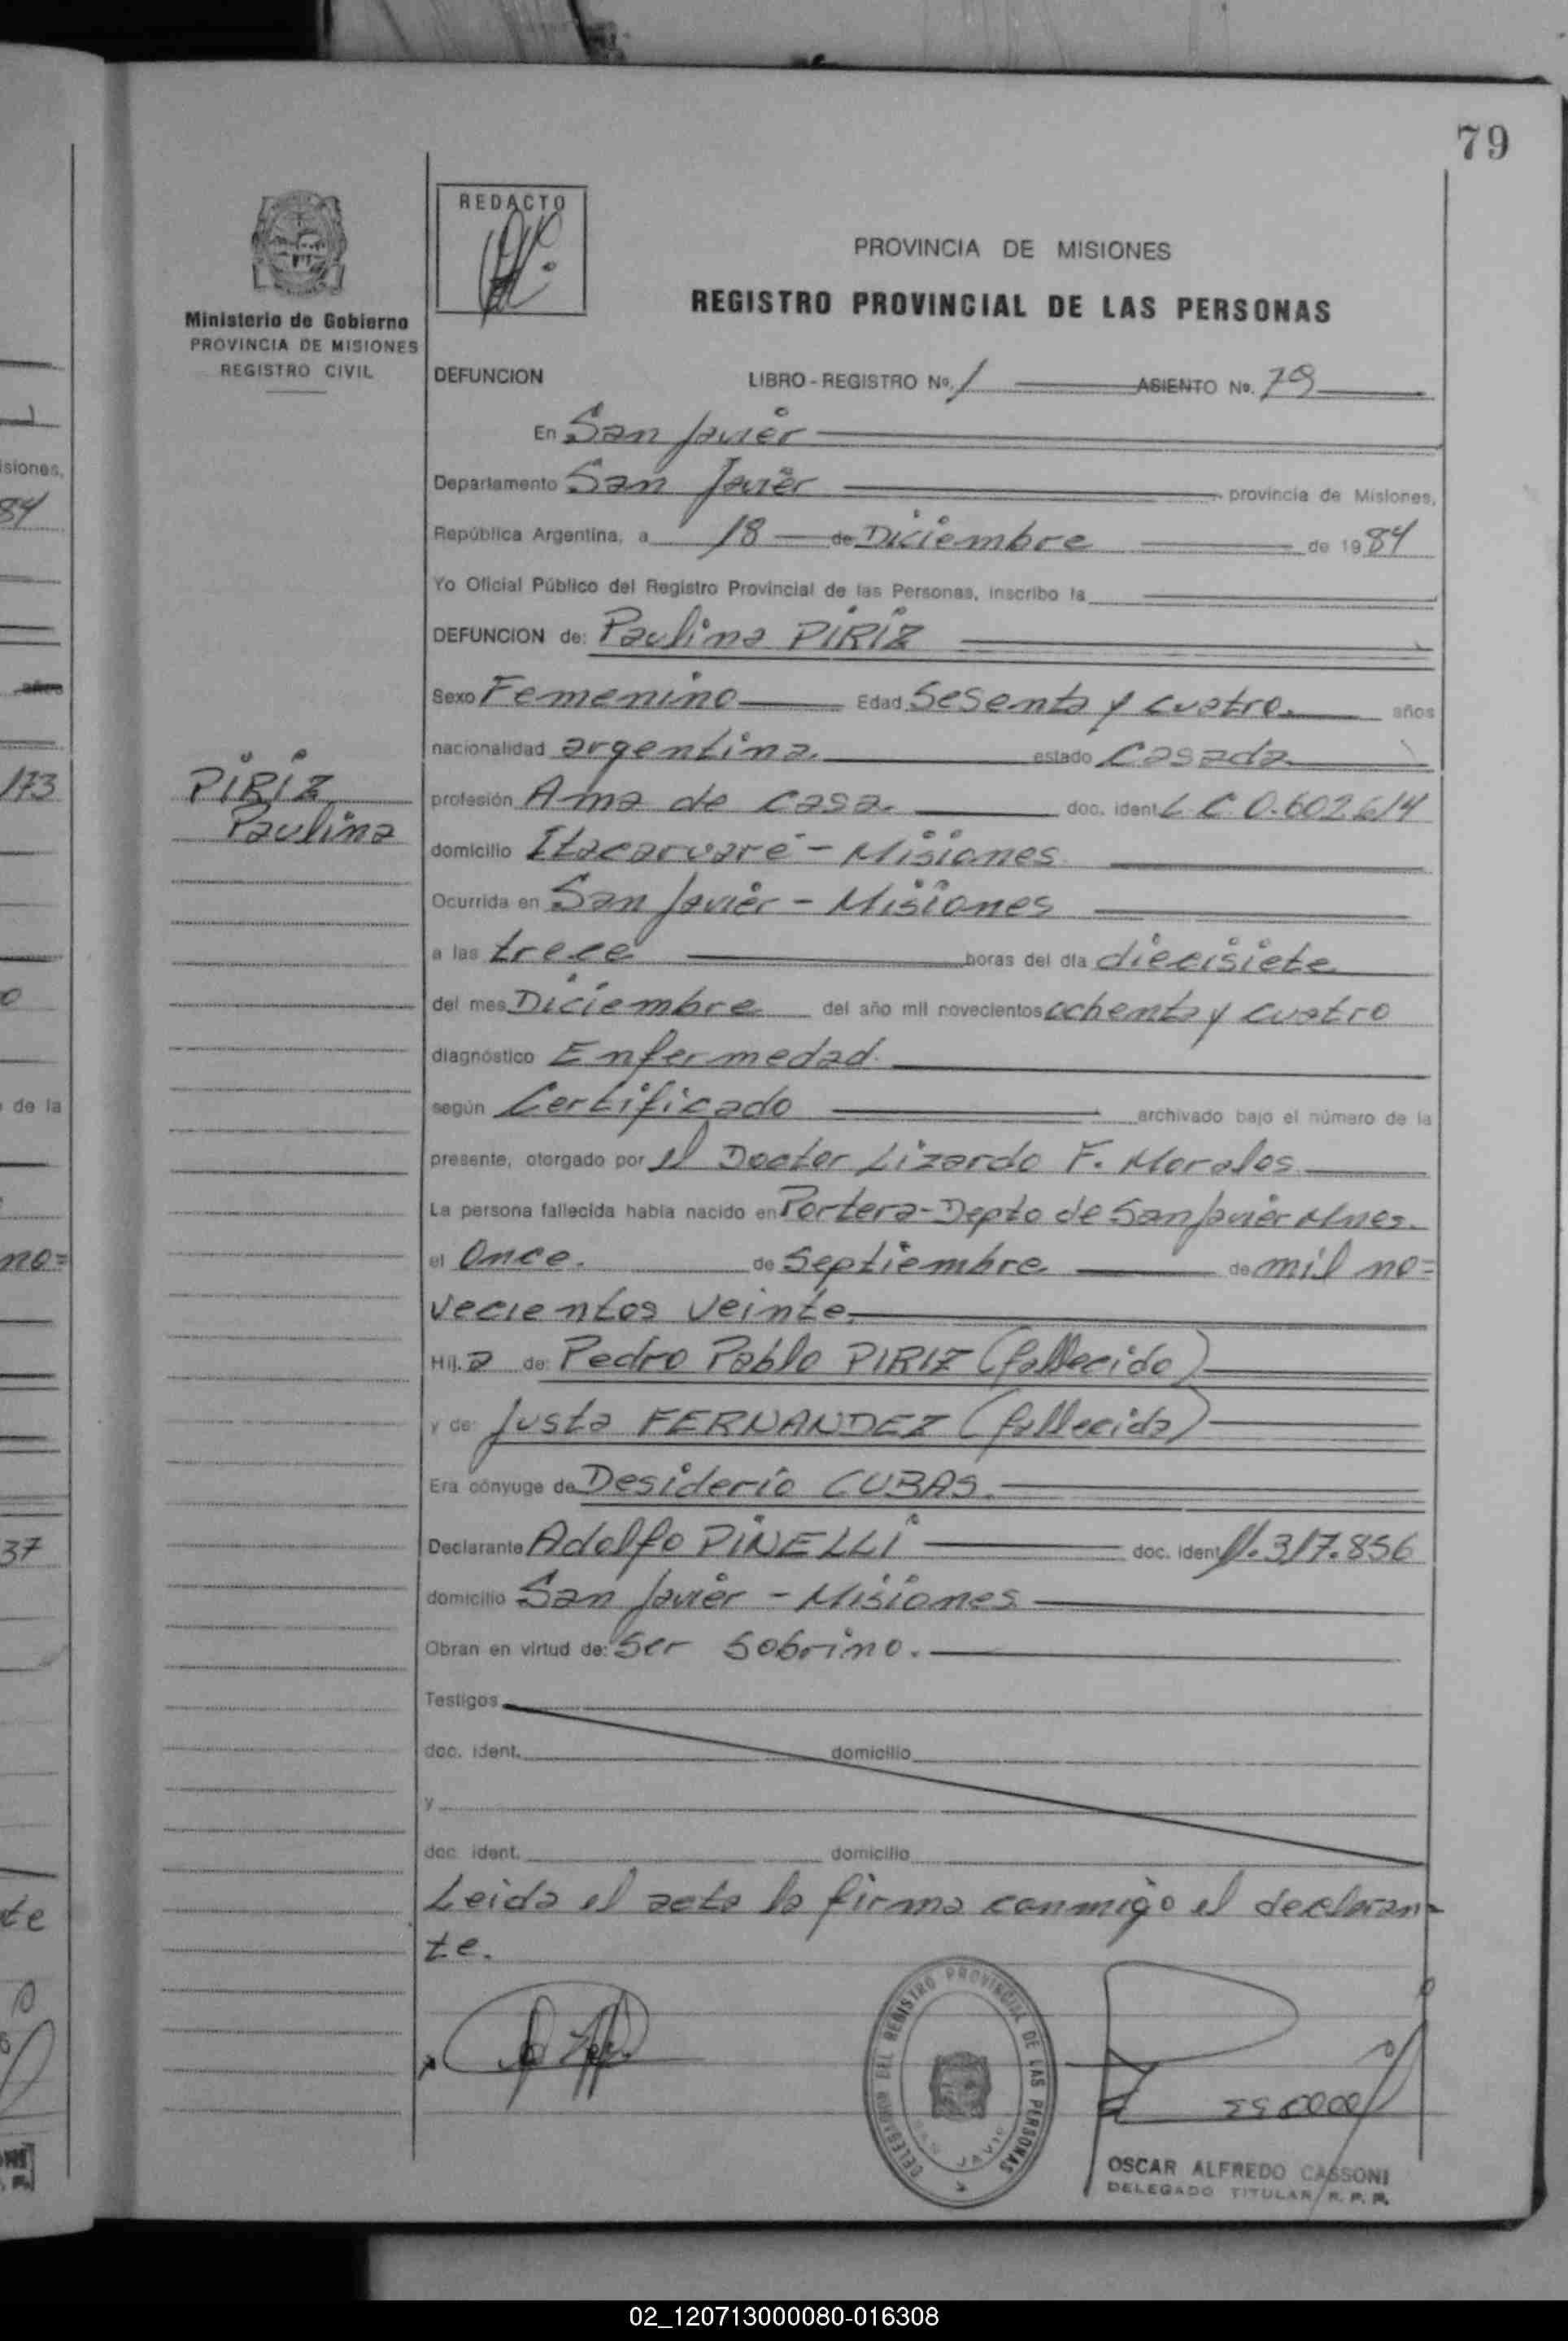 79
REDACTO
Ministerio de Gobierno
PROVINCIA DE MISIONES
REGISTRO CIVIL
PROVINCIA DE MISIONES
REGISTRO PROVINCIAL DE LAS PERSONAS
DEFUNCION LIBRO - REGISTRO Nº. 1 ASIENTO Nº. 79
En San Javier
Departamento San Javier provincia de Misiones,
República Argentina, a 18 de Diciembre de 1984
Yo Oficial Público del Registro Provincial de las Personas, inscribo la
DEFUNCION de: Paulina PIRIZ
Sexo Femenino Edad Sesenta y cuatro. años
nacionalidad argentina. estado Casada
PIRIZ
Paulina
profesión Ama de casa. doc. ident. L.C 0.602.614
domicilio Itacaruaré - Misiones
Ocurrida en San Javier - Misiones
a las trece horas del día diecisiete
del mes Diciembre del año mil novecientos ochenta y cuatro
diagnóstico Enfermedad.
según Certificado archivado bajo el número de la
presente, otorgado por el Doctor Lizardo F. Morales
La persona fallecida había nacido en Portera-Depto de San Javier Mnes.
el Once. de Septiembre de mil no=
vecientos veinte.
Hij.a de: Pedro Pablo PIRIZ (fallecido)
y de: Justa FERNANDEZ (fallecida)
Era cónyuge de Desiderio CUBAS.
Declarante Adolfo PINELLI doc. ident. 11.317.856
domicilio San Javier - Misiones
Obran en virtud de: Ser Sobrino.
Testigos
doc. ident. domicilio
y
doc. ident. domicilio
Leida el acta la firma conmigo el declaran=
te.
DELEGACION DEL REGISTRO PROVINCIAL DE LAS PERSONAS
SAN JAVIER
OSCAR ALFREDO CASSONI
DELEGADO TITULAR R. P. P.
02_120713000080-016308